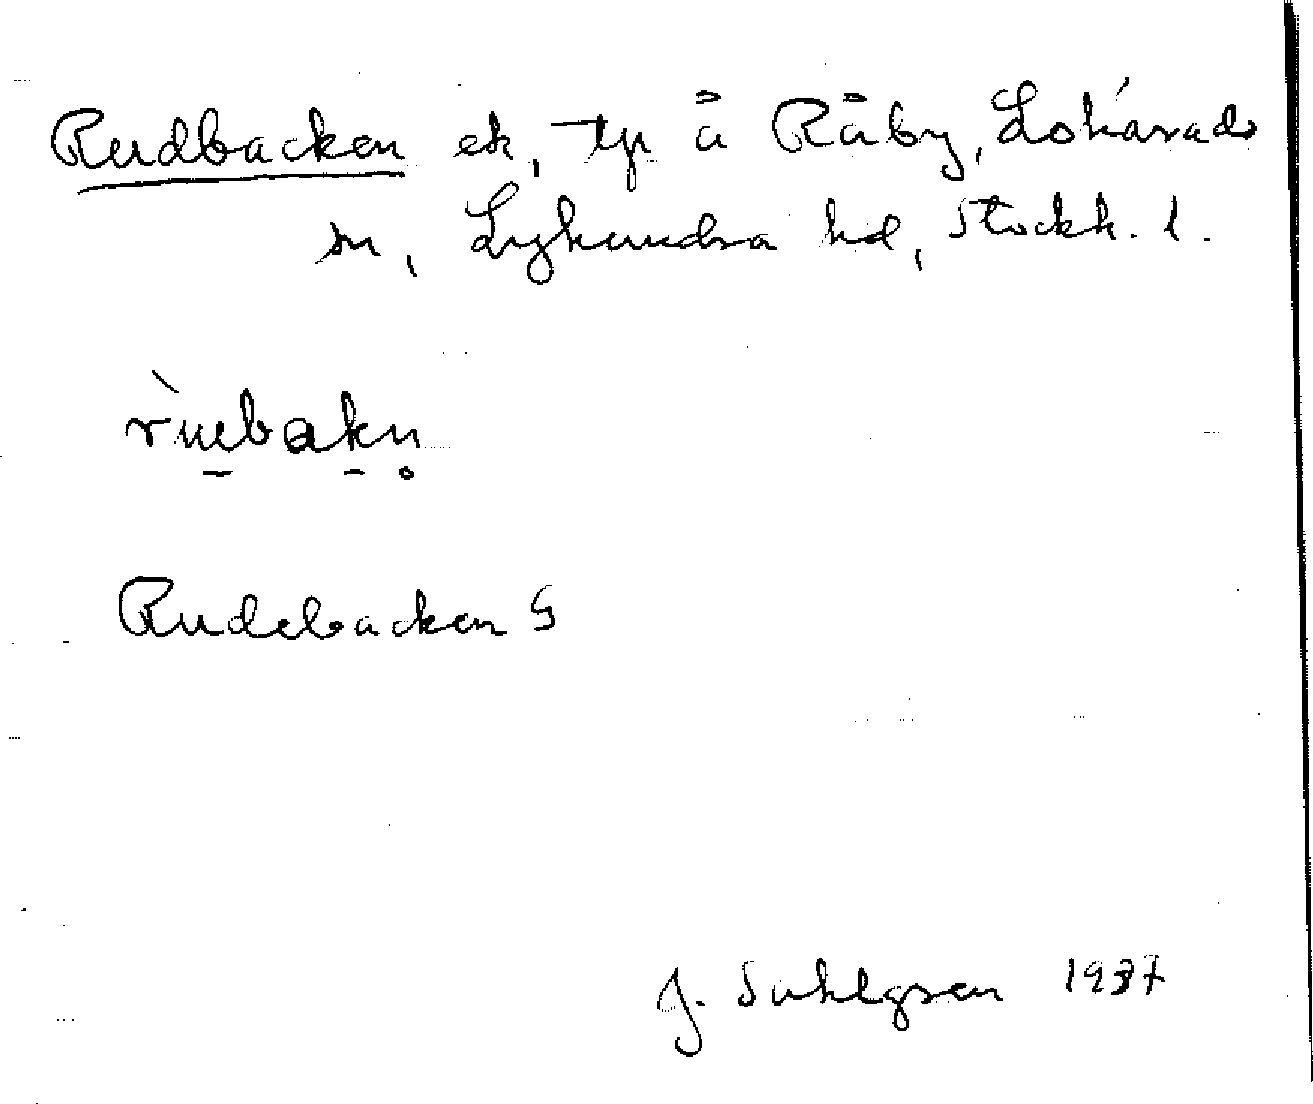 Rudbacken ek, tp å Råby, Lohärads
sn, Lyhundra hd, Stockh. l.
rùebakn̥
Rudebacken G
J. Sahlgren 1937